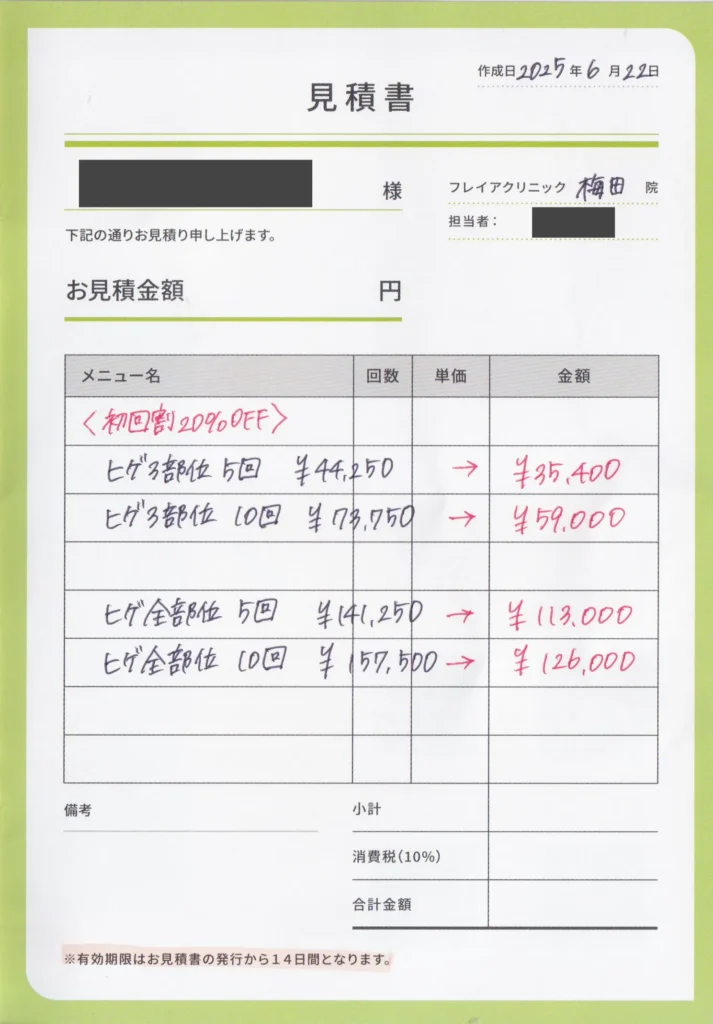 作成日2025年6月22日
見積書
様
フレイアクリニック 梅田 院
担当者：
下記の通りお見積り申し上げます。
お見積金額 円
メニュー名 回数 単価 金額
〈初回割20%OFF〉
ヒゲ3部位 5回 ¥44,250 → ¥35,400
ヒゲ3部位 10回 ¥73,750 → ¥59,000
ヒゲ全部位 5回 ¥141,250 → ¥113,000
ヒゲ全部位 10回 ¥157,500 → ¥126,000
備考
小計
消費税(10%)
合計金額
※有効期限はお見積書の発行から14日間となります。